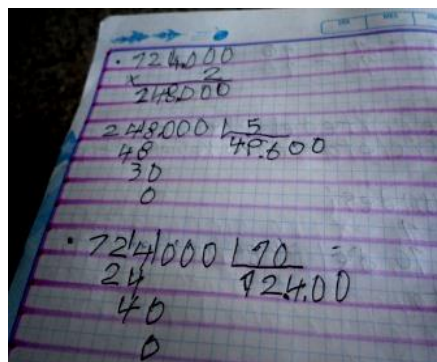 · 124.000
x 2
248.000
248.000 | 5
48 49.600
30
0
· 124000 | 10
24 12.4.00
40
0